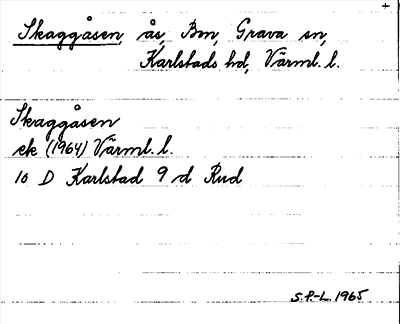 +
Skaggåsen, ås, Bm, Grava sn,
Karlstads hd, Värml. l.
Skaggåsen
ek (1964) Värml. l.
10 D Karlstad 9 d Rud
S.P-L. 1965